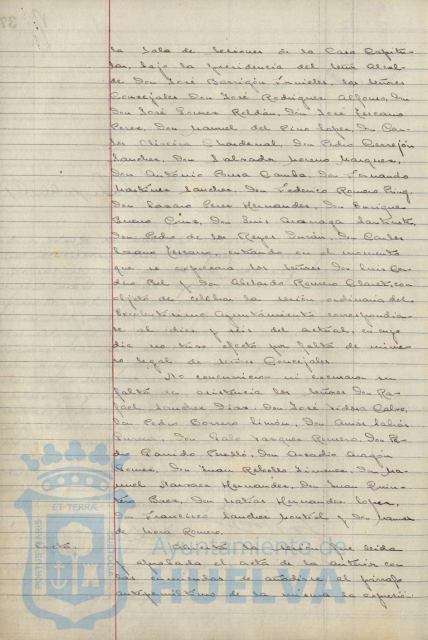 la Sala de Sesiones de la Casa Capitu-
lar, bajo la presidencia del Señor Alcal-
de Don José Barrigón Fornieles, los Señores
Concejales Don José Rodríguez Alfonso, Don
Don José Gómez Roldán, Don José Toscano
Pérez, Don Manuel del Pino López, Don Car-
los Oliveira Chardenal, Don Pedro Cerrejón
Sánchez, Don Salvador Moreno Márquez,
Don Antonio Pousa Camba, Don Fernando
Martínez Sánchez, Don Federico Romero
Don Lázaro Pérez Hernández, Don Enrique
Bueno Cruz, Don Luis
Don Pedro de los Reyes Durán, Don Carlos
Toscano, entrando en el momento
que se expresara los señores Don Luis Cor-
dero Bel y Don Abelardo Romero con
objeto de celebrar la sesión ordinaria del
Excelentísimo Ayuntamiento correspondien-
te al diez y seis del actual, en cuyo
día no tuvo efecto por falta de núme-
ro legal de señores Concejales.
No concurrieron ni excusaron su
falta de asistencia los señores Don Ra-
fael Sánchez Díaz, Don José Calvo,
Don Pedro Borrero Limón, Don
Don Vázquez Romero, Don Pe-
dro Garrido Perelló, Don Arcadio Aragón
Gómez, Don Juan Rebollo Jiménez, Don Ma-
nuel Hernández, Don Juan Quin-
tero Báez, Don Matías Hernández López,
Don Francisco Sánchez y Don Manuel
de Mora Romero.
Acta. Abierta la sesión fue leída
y aprobada el acta de la anterior con
las enmiendas de añadirse al párrafo
antepenúltimo de la misma la expresión
ET TERRAE
PORTUS MARIS
CUSTODIA
Ayuntamiento de
HUELVA